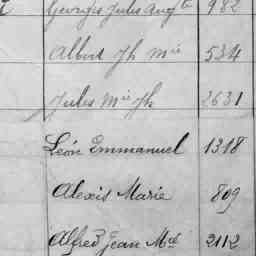 Georges Jules Augte 982
Albert Jh Mie 534
Jules Mie Jh 2631
Léon Emmanuel 1318
Alexis Marie 809
Alfred Jean Mie 2112